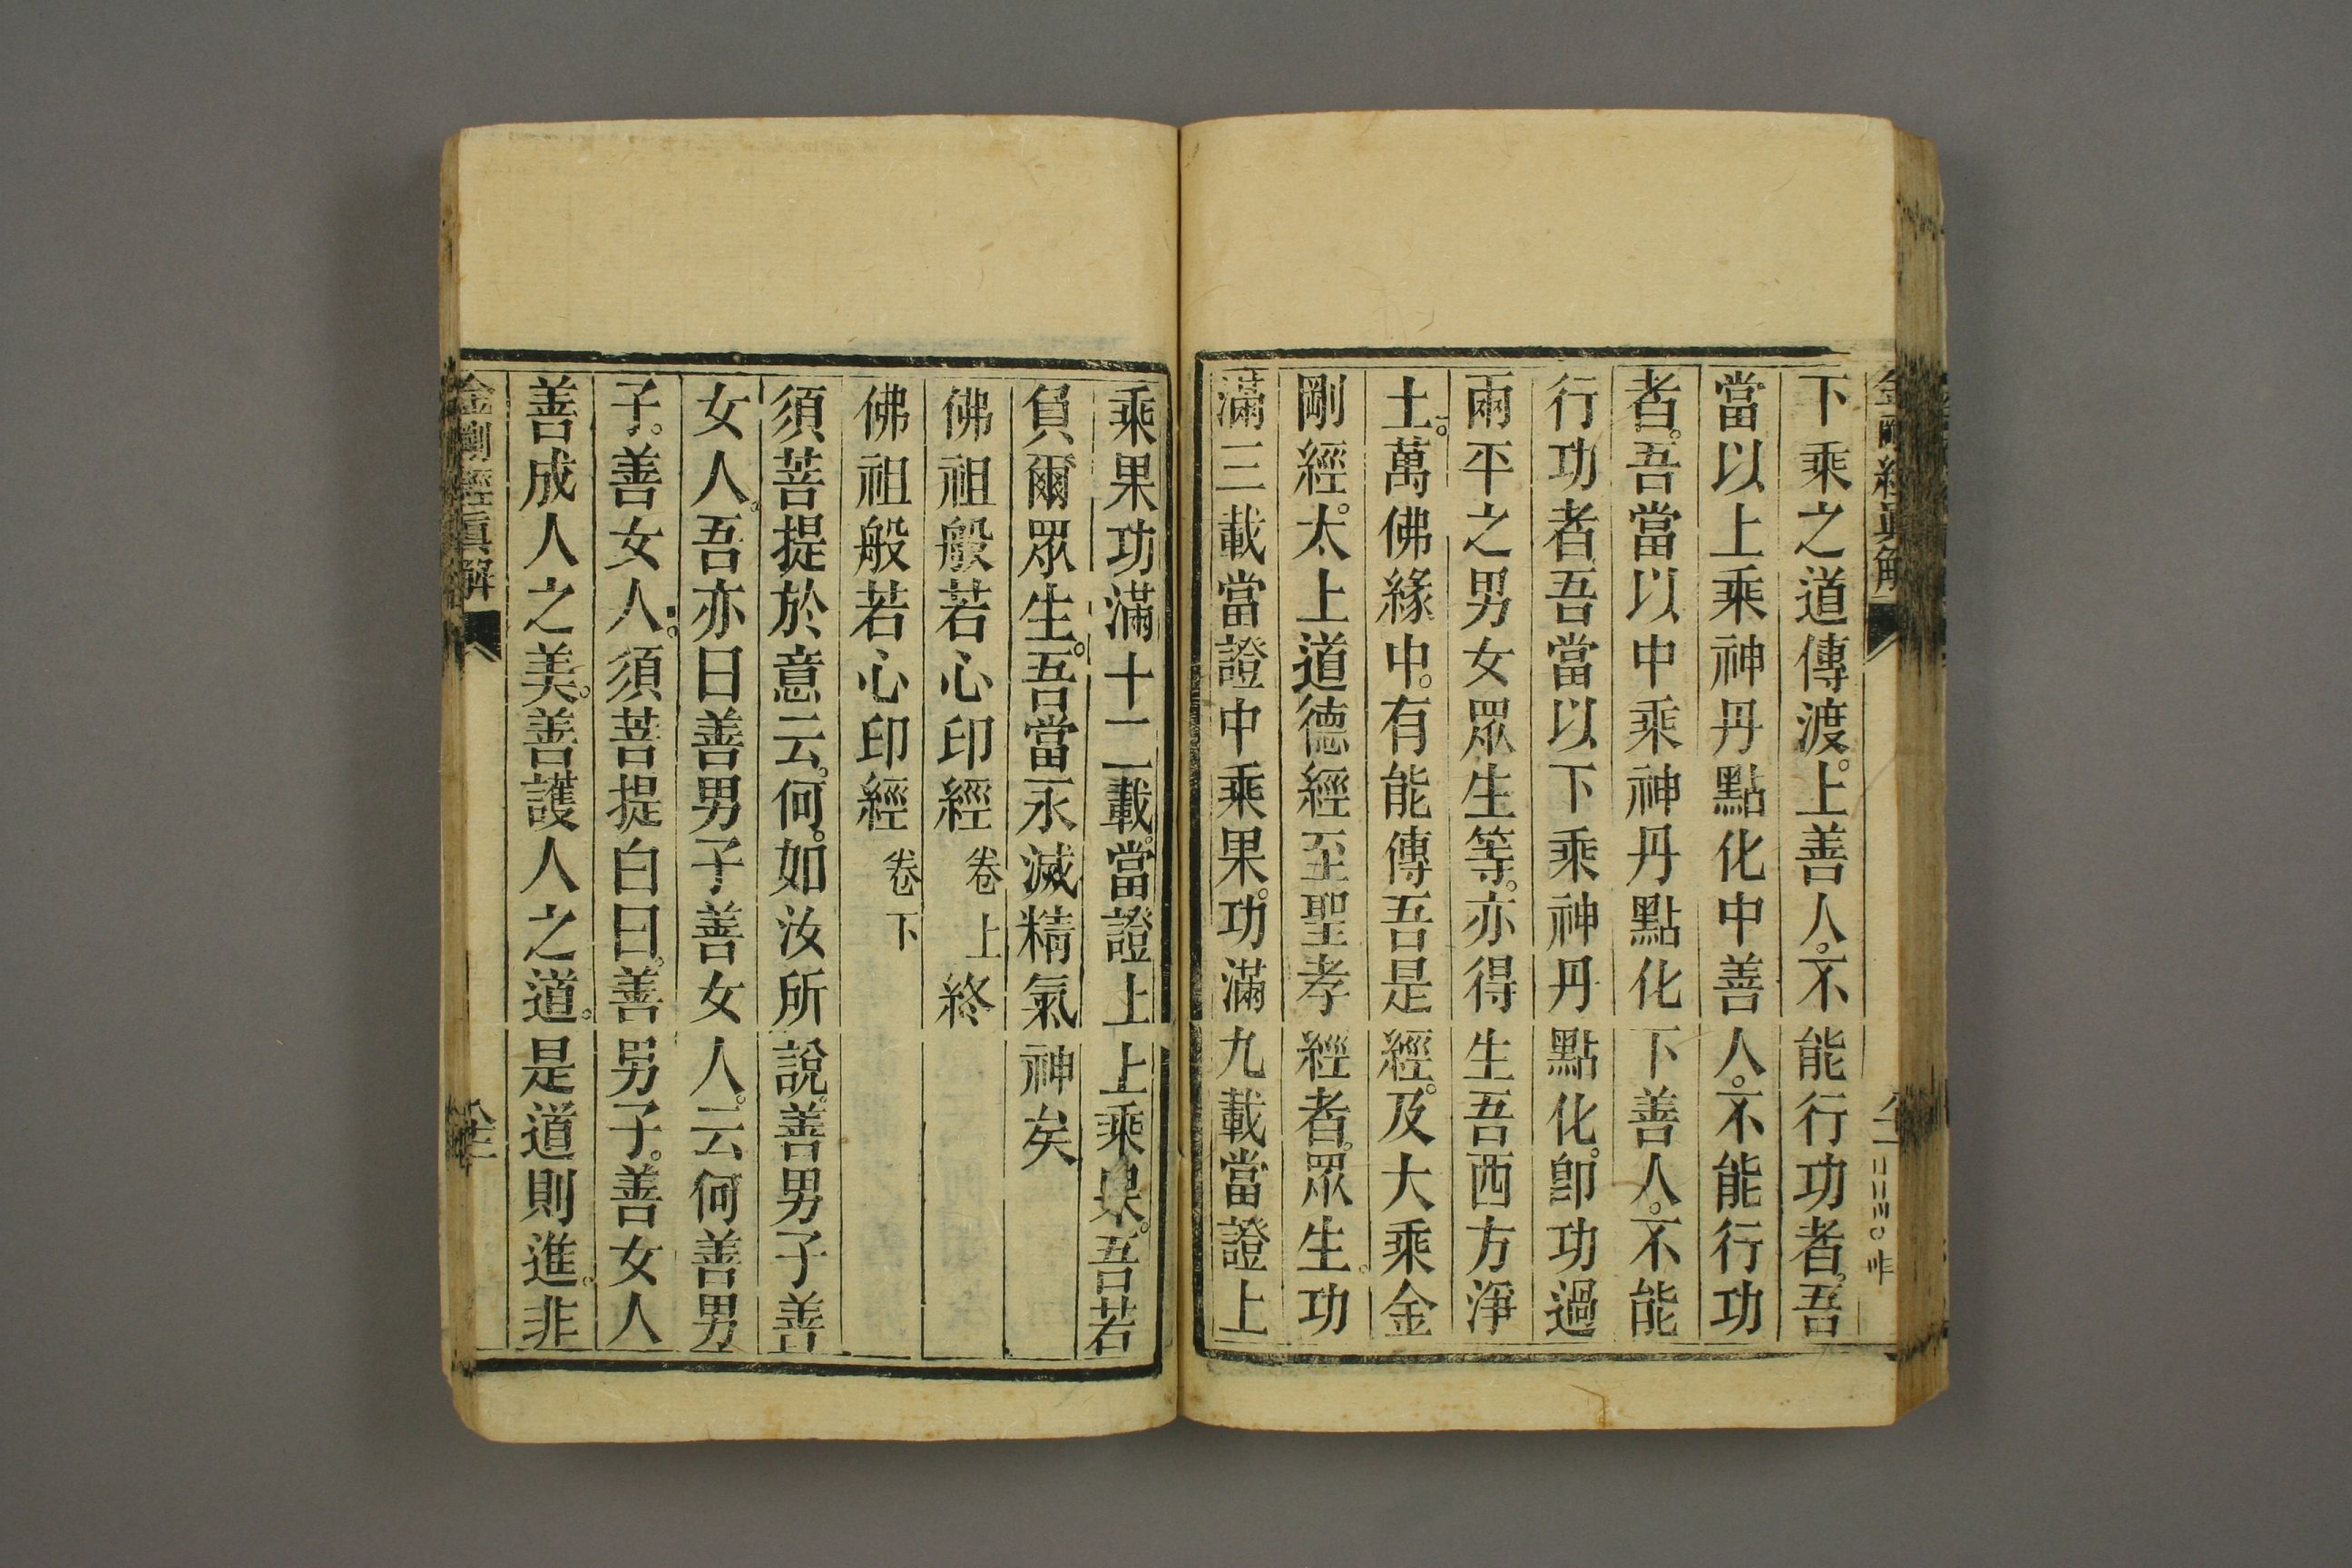 金剛經眞解
下乘之道傳渡。上善人。不能行功者。吾
當以上乘神丹點化中善人。不能行功
者。吾當以中乘神丹點化下善人。不能
行功者。吾當以下乘神丹點化。卽功過
兩平之男女眾生等。亦得生吾西方淨
土。萬佛緣中。有能傳吾是經。及大乘金
剛經。太上道德經至聖孝經者。眾生。功
滿三載當證中乘果。功滿九載當證上
乘果功滿十二載。當證上上乘果。吾若
負爾眾生。吾當永滅精氣神矣
佛祖般若心印經卷上終
佛祖般若心印經卷下
須菩提於意云。何。如汝所說。善男子善
女人。吾亦曰善男子善女人。云何善男
子。善女人。須菩提白曰。善男子。善女人
善成人之美。善護人之道。是道則進。非
金剛經眞解